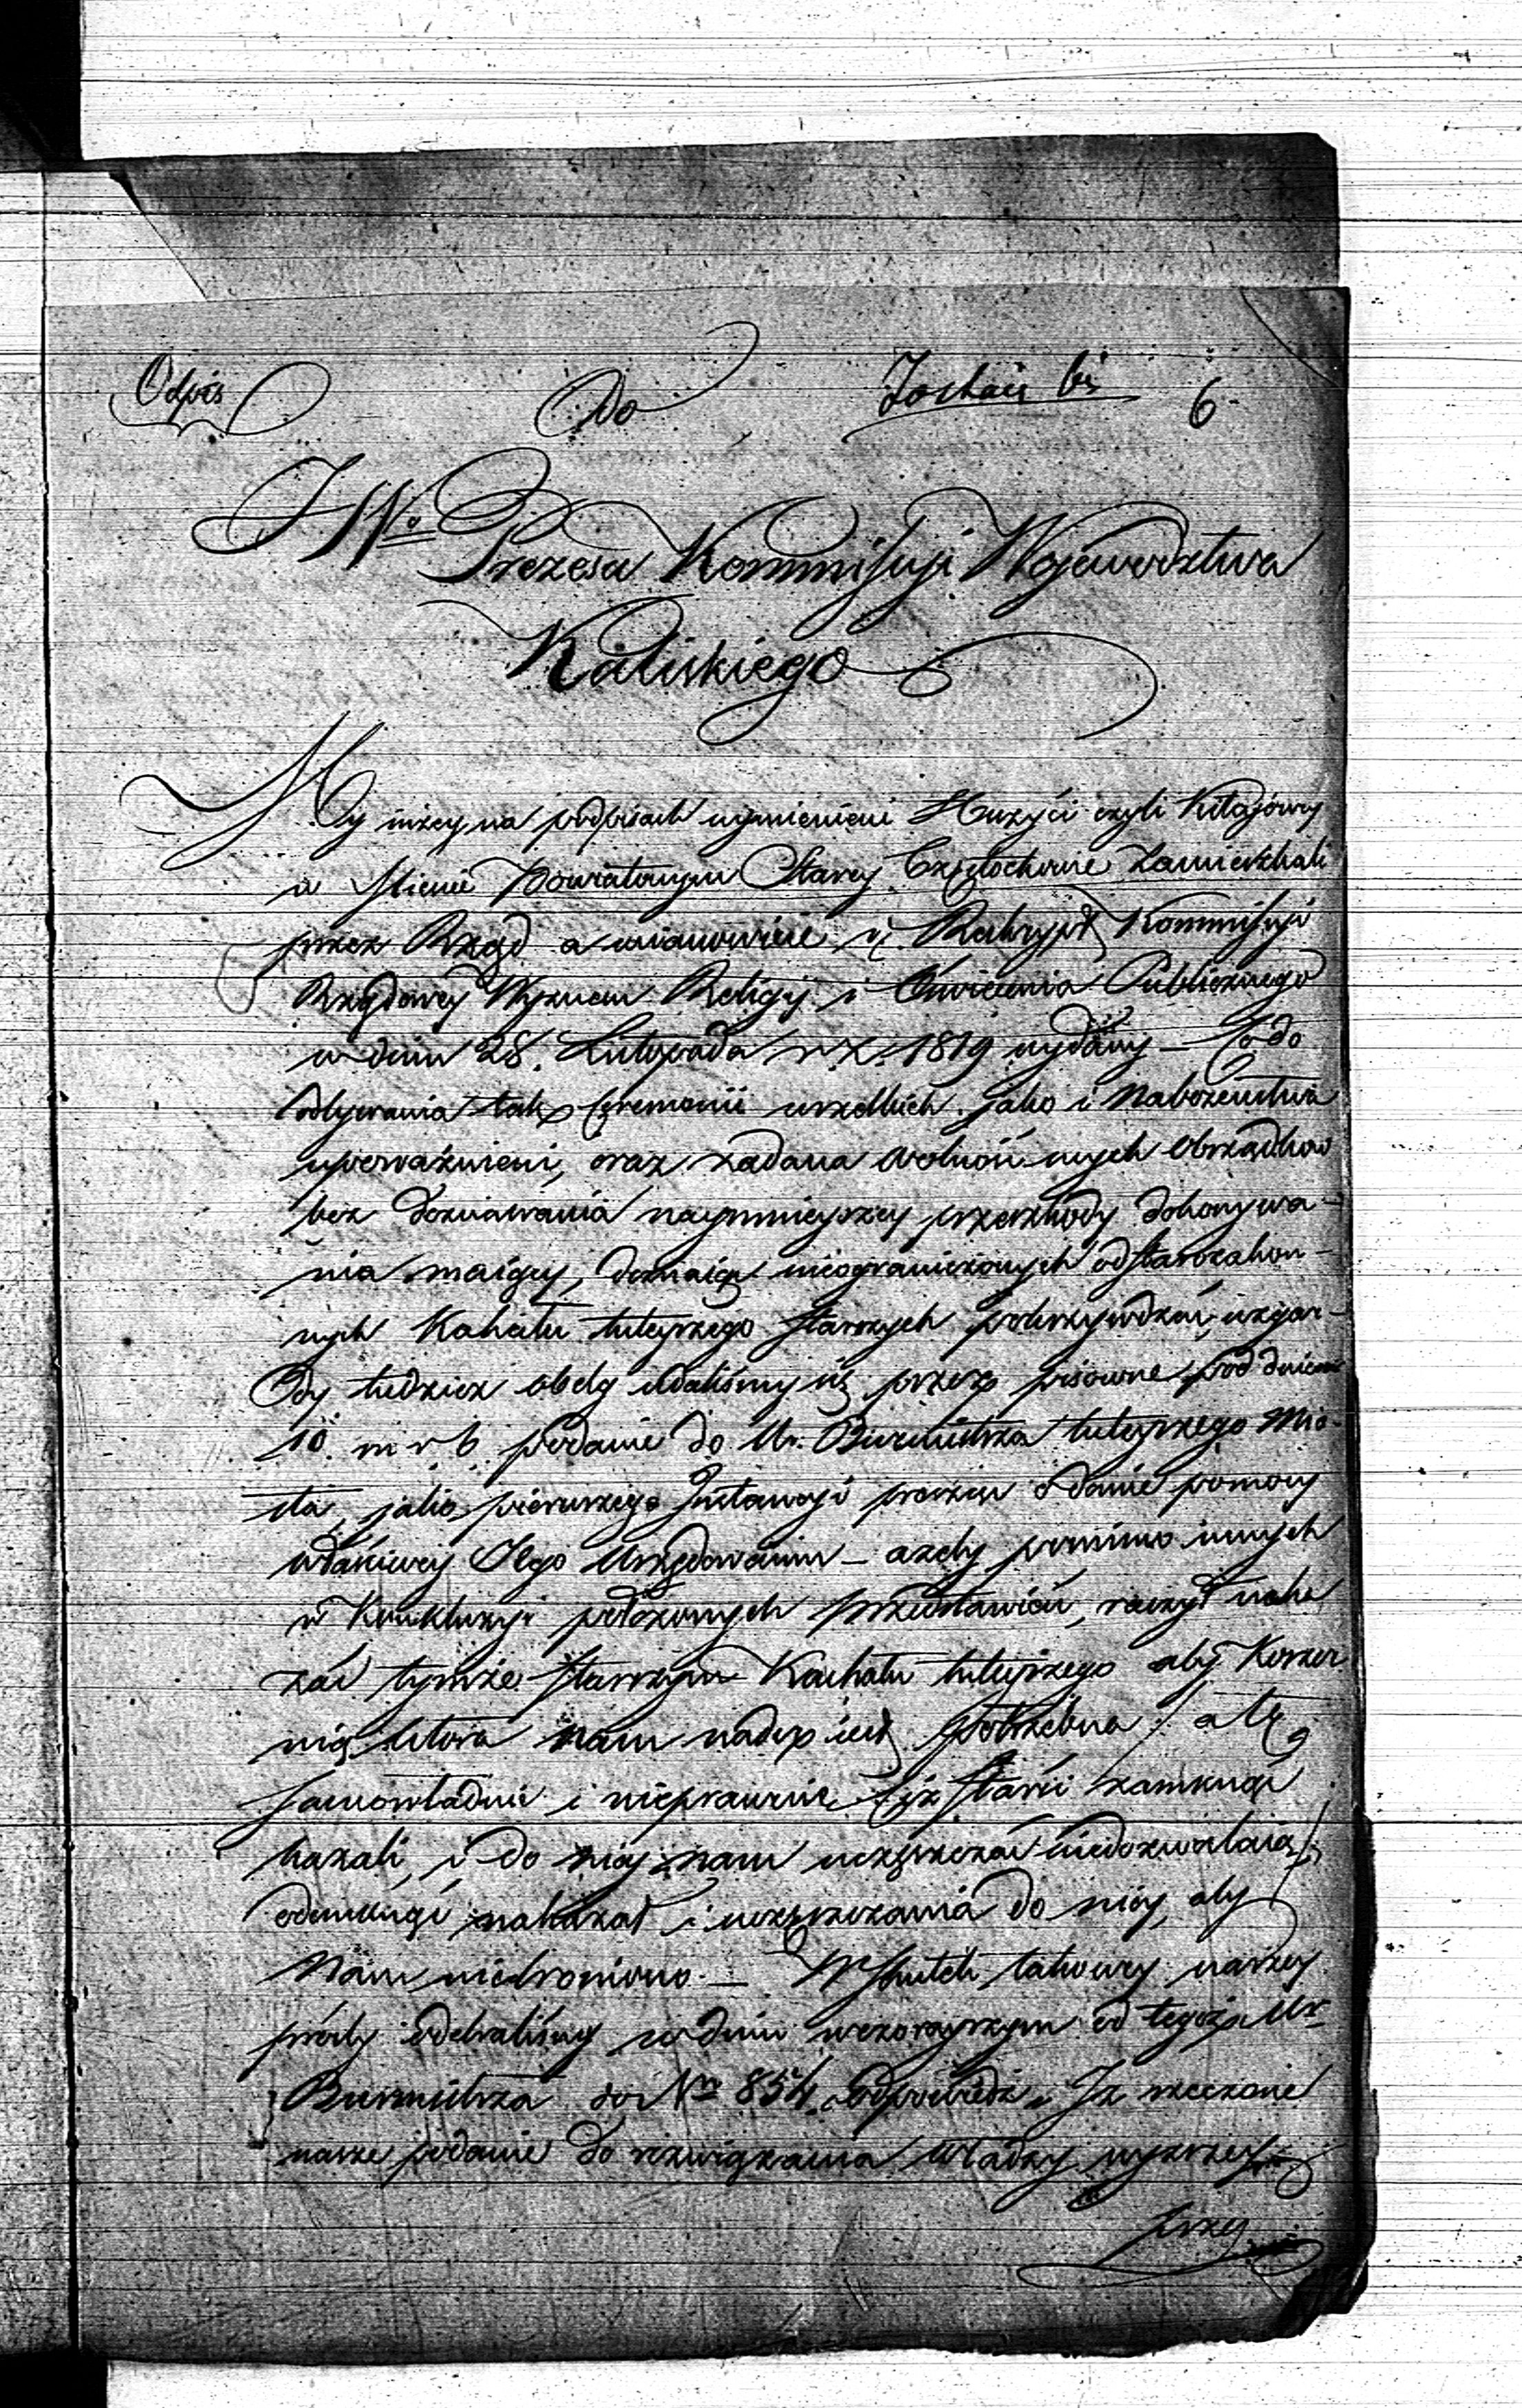 Odpis Do 6
JWo Prezesa Kommissyji Województwa
Kaliskiego
My niżey na podpisach wymienieni Huzyci czyli Kitajowcy
w Mieście Powiatowym Starey Częstochowie Zamieszkali
przez Rząd a mianowicie Reskrypt Kommissyji
Rządowey Wyznań Religij i Oświecenia Publicznego
w dniu 28. Listopada r. z. 1819 wydany – Co do
odbywania tak Ceremonii wszelkich jako i Nabożeństwa
upoważnieni, oraz żadana wolność onych obrządków
bez doznawania naymnieyszey przeszkody dokonywa-
nia maiący, doznaiąc nieograniczonych od Starozakon-
nych Kahału tuteyszego Starszych pokrzywdzeń, wzgar-
dy tudzież obelg udaliśmy się przez pisowne pod dniem
10. m. r. b. podanie do Ur. Burmistrza tuteyszego Mia-
sta, jako pierwszego Instancyi prosząc o danie pomocy
właściwey Jego Urzędowaniu – ażeby pomimo innych
w Konkluzyi położonych przedstawień, raczył naka
zać tymże Starszym Kachału tuteyszego aby Koszer
nią która nam nader iest potrzebna /: a tę
samowładnie i nieprawnie ciż Starsi zamknąć
kazali, i do niey nam uczęszczać niedozwalaią :/
odemknąć nakazał i uczęszczania do niey, aby
Nam niebroniono. – W skutek takowey naszey
prośby odebraliśmy w dniu wczorayszym od tegoż Ur
Burmistrza do Nro 854. odpowiedź „Iż rzeczone
nasze podanie do rozwiązania Władzy wyższey
przez